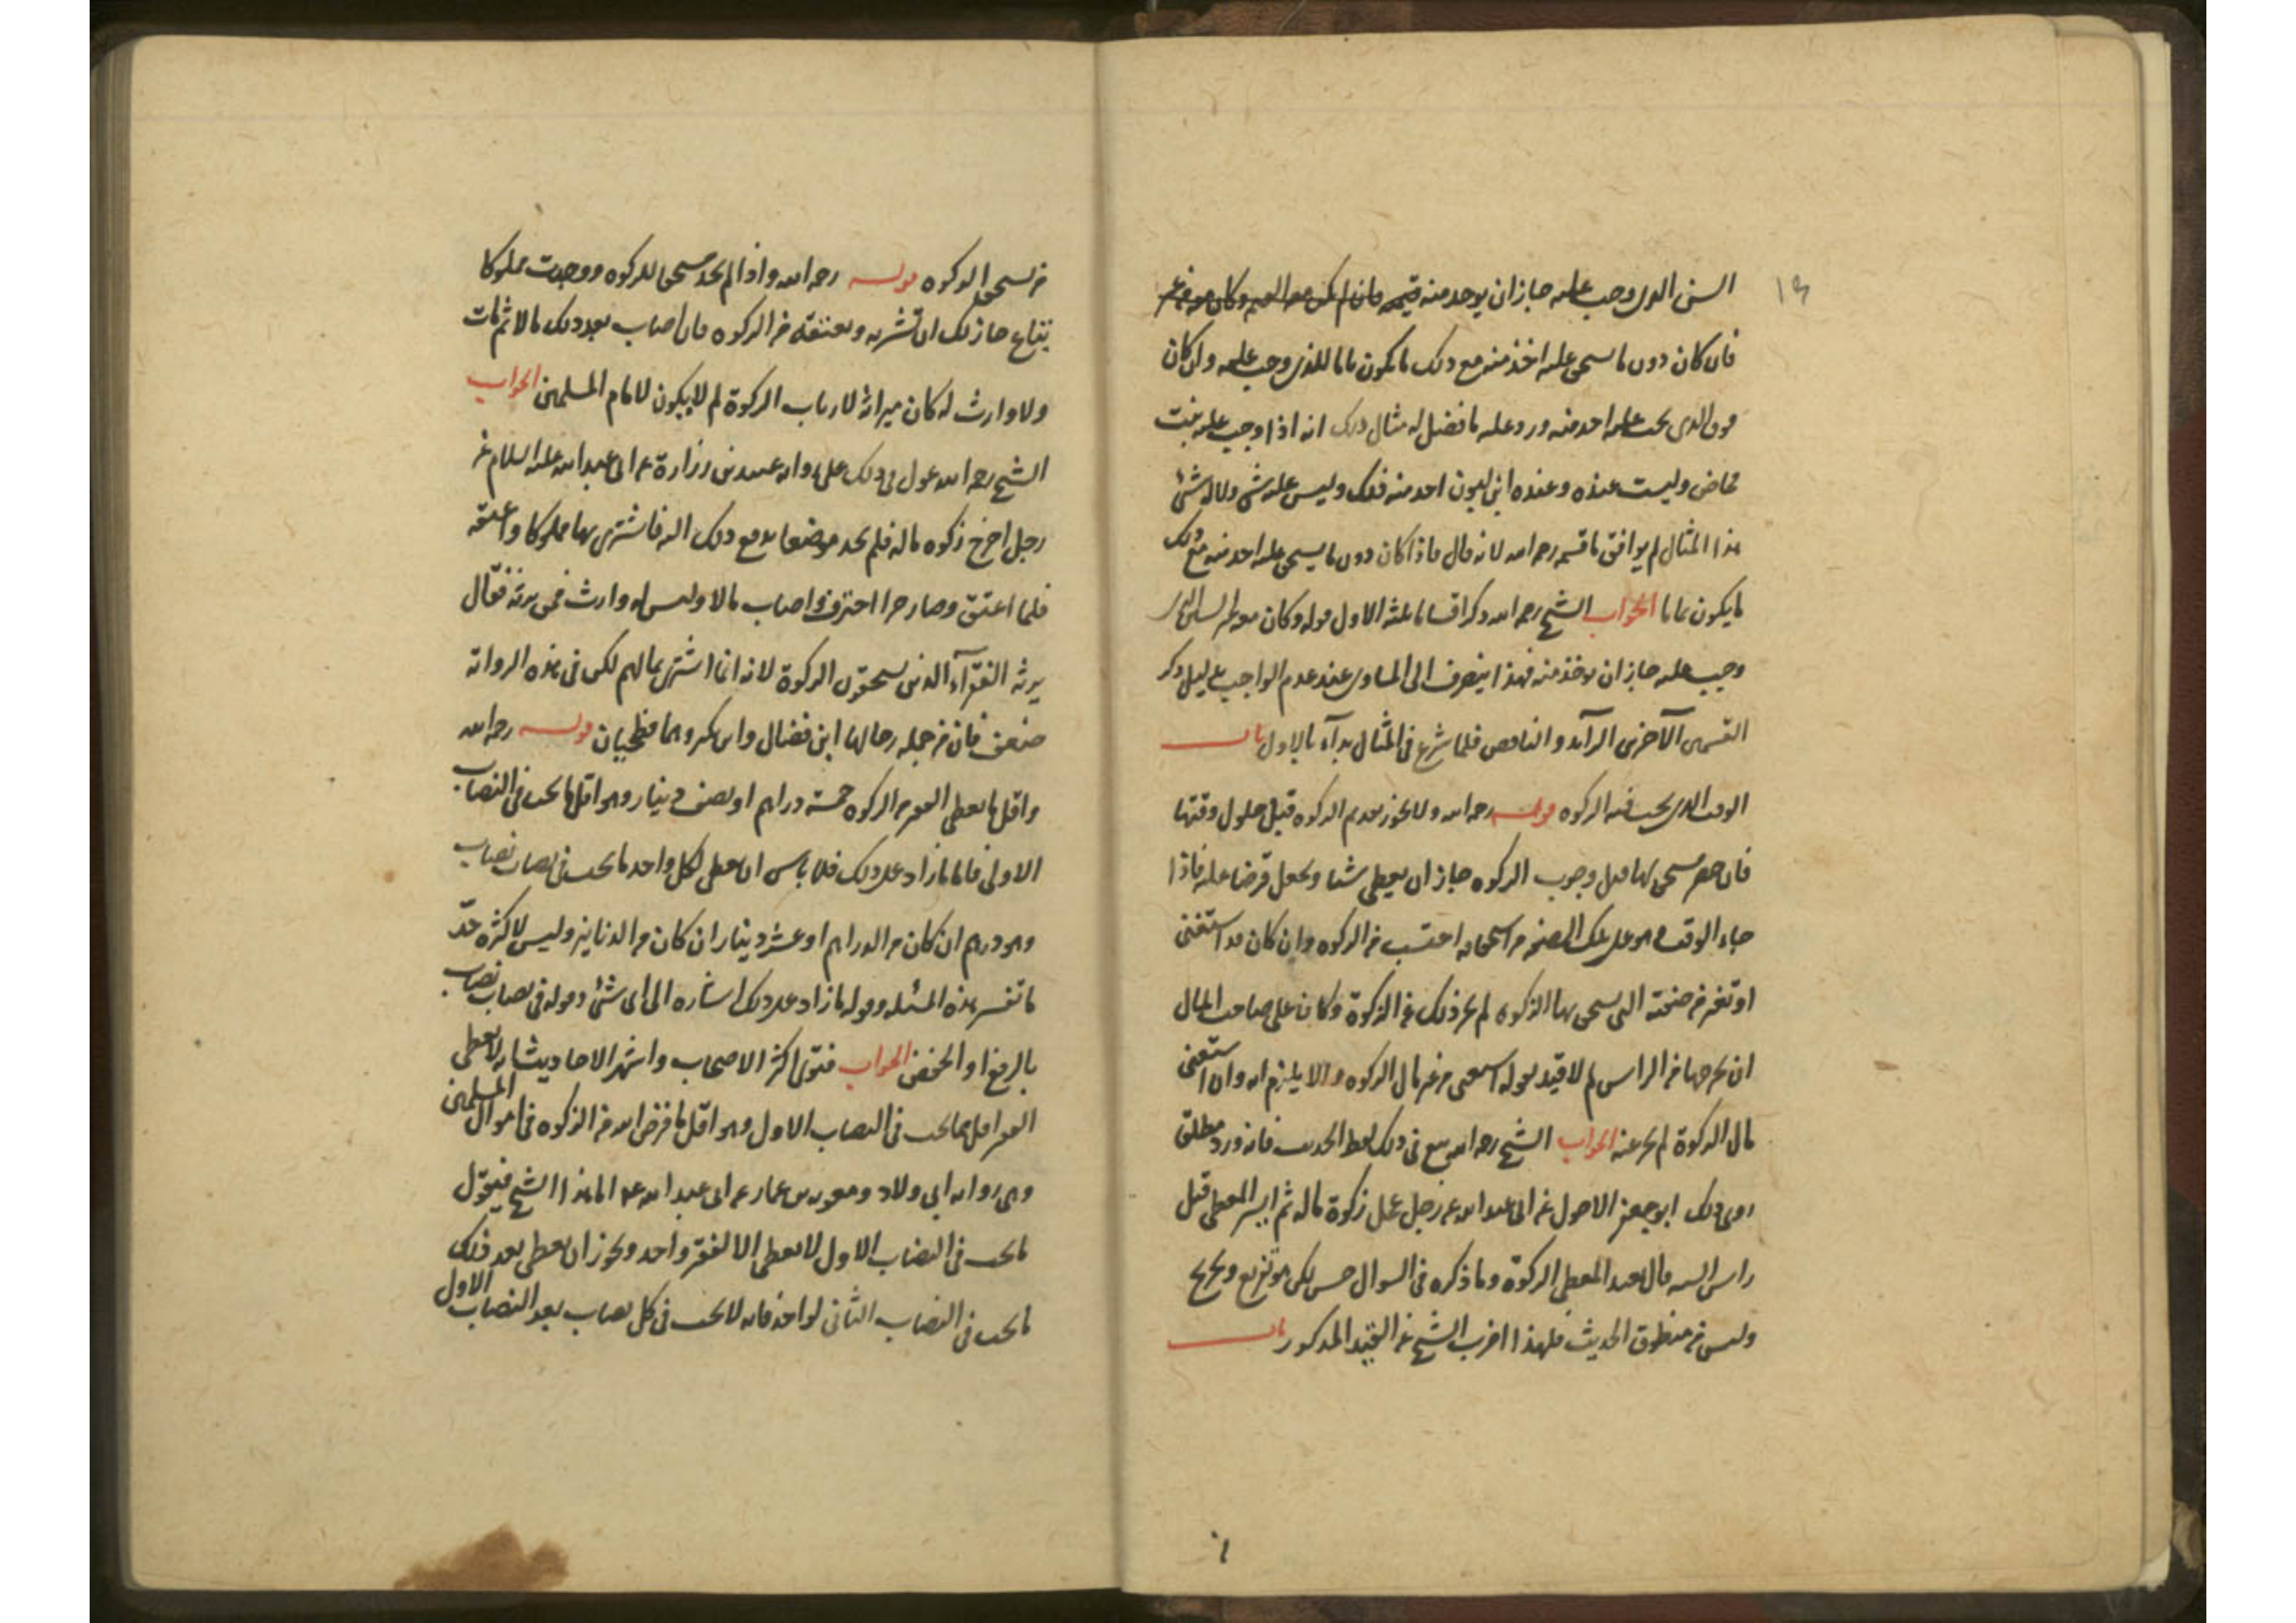 ١٩
السن الذى وجب عليه جاز ان يوخذ منه قيمته فان لم يكن معه القيمة وكان معه غير
فان كان دون ما يستحق عليه اخذ منه مع ذلك ما يكون تماما للذى وجب عليه وان كان
فوق الذى يجب عليه اخذ منه ورد عليه ما فضل له مثال ذلك انه اذا وجب عليه بنت
مخاض وليست عنده وعنده ابن لبون اخذ منه ذلك وليس عليه شى ولا له شئ
هذا المثال لم يوافق ما قسمه رحمه الله لانه قال فاذا كان دون ما يستحق عليه اخذ منه مع ذلك
ما يكون تماما الجواب الشيخ رحمه الله ذكر اقساما ثلثة الاول قوله وكان معه غير السن الذى
وجب عليه جاز ان يوخذ منه فهذا ينصرف الى المساوى عند عدم الواجب ثم ذكر
القسمين الآخرين الزآئد والناقص فلما شرع فى المثال بدآء بالاول باب
الوقت الذى يجب فيه الزكوة قوله رحمه الله ولا يجوز تقديم الزكوة قبل حلول وقتها
فان حضر مستحق لها قبل وجوب الزكوة جاز ان يعطى شيئا ويجعل قرضا عليه فاذا
جاء الوقت وهو على تلك الصفة من استحقاقه احتسب من الزكوة وان كان قد استغنى
او تغير من صفته التى يستحق بها الزكوة لم يجز ذلك عن الزكوة وكان على صاحب المال
ان يخرجها من الراس لم لا قيد بقوله استغنى من غير مال الزكوة والا يلزم انه وان استغنى
مال الزكوة لم يجز عنه الجواب الشيخ رحمه الله تبع فى ذلك لفظ الحديث فانه ورد مطلق
روى ذلك ابو جعفر الاحول عن ابى عبد الله عن رجل عجل زكوة ماله ثم ايسر المعطى قبل
راس السنه قال يعيد المعطى الزكوة وما ذكره فى السوال حسن لكن هو تفريع وتخريج
وليس من منطوق الحديث فلهذا اضرب الشيخ عن القيد المذكور باب
من يستحق الزكوة قوله رحمه الله واذا لم يجد مستحق للزكوة ووجدت مملوكا
يتباع جاز لك ان تشتريه وتعتقه من الزكوة فان اصاب بعد ذلك مالا ثم مات
ولا وارث له كان ميراثه لارباب الزكوة لم لا يكون لامام المسلمين الجواب
الشيخ رحمه الله عول فى ذلك على رواية عبيد بن زرارة عن ابى عبد الله عليه السلام عن
رجل اخرج زكوه ماله فلم يجد موضعا يدفع ذلك اليه فاشترى بها مملوكا واعتقه
فلما اعتق وصار حرا احترف واصاب مالا وليس له وارث فمن يرثه فقال
يرثه الفقرآء الذين يستحقون الزكوة لانه انما اشترى بمالهم لكن فى هذه الرواية
ضعف فان من جملة رجالها ابن فضال وابن بكير وهما فطحيان قوله رحمه الله
واقل ما يعطى الفقير من الزكوه خمسة دراهم او نصف دينار وهو اقل ما يجب فى النصاب
الاول فاما ما زاد على ذلك فلا باس ان يعطى لكل واحد ما يجب فى نصاب نصاب
وهو درهم ان كان من الدراهم او عشر دينار ان كان من الدنانير وليس لاكثره حدّ
ما تفسير هذه المسئله وقوله ما زاد على ذلك اشاره الى اى شئ وقوله فى نصاب نصاب
بالرفع او الخفض الجواب فتوى اكثر الاصحاب واشهر الاحاديث انه لا يعطى
الفقير اقل مما يجب فى النصاب الاول وهو اقل ما فرض الله من الزكوه فى اموال المسلمين
وهى روايه ابى ولاد ومعوية بن عمار عن ابى عبد الله ع اما هذا الشيخ فيقول
ما يجب فى النصاب الاول لا يعطى الا لفقير واحد ويجوز ان يعطى بعد ذلك
ما يجب فى النصاب الثانى لواحد فانه لا يجب فى كل نصاب بعد النصاب الاول